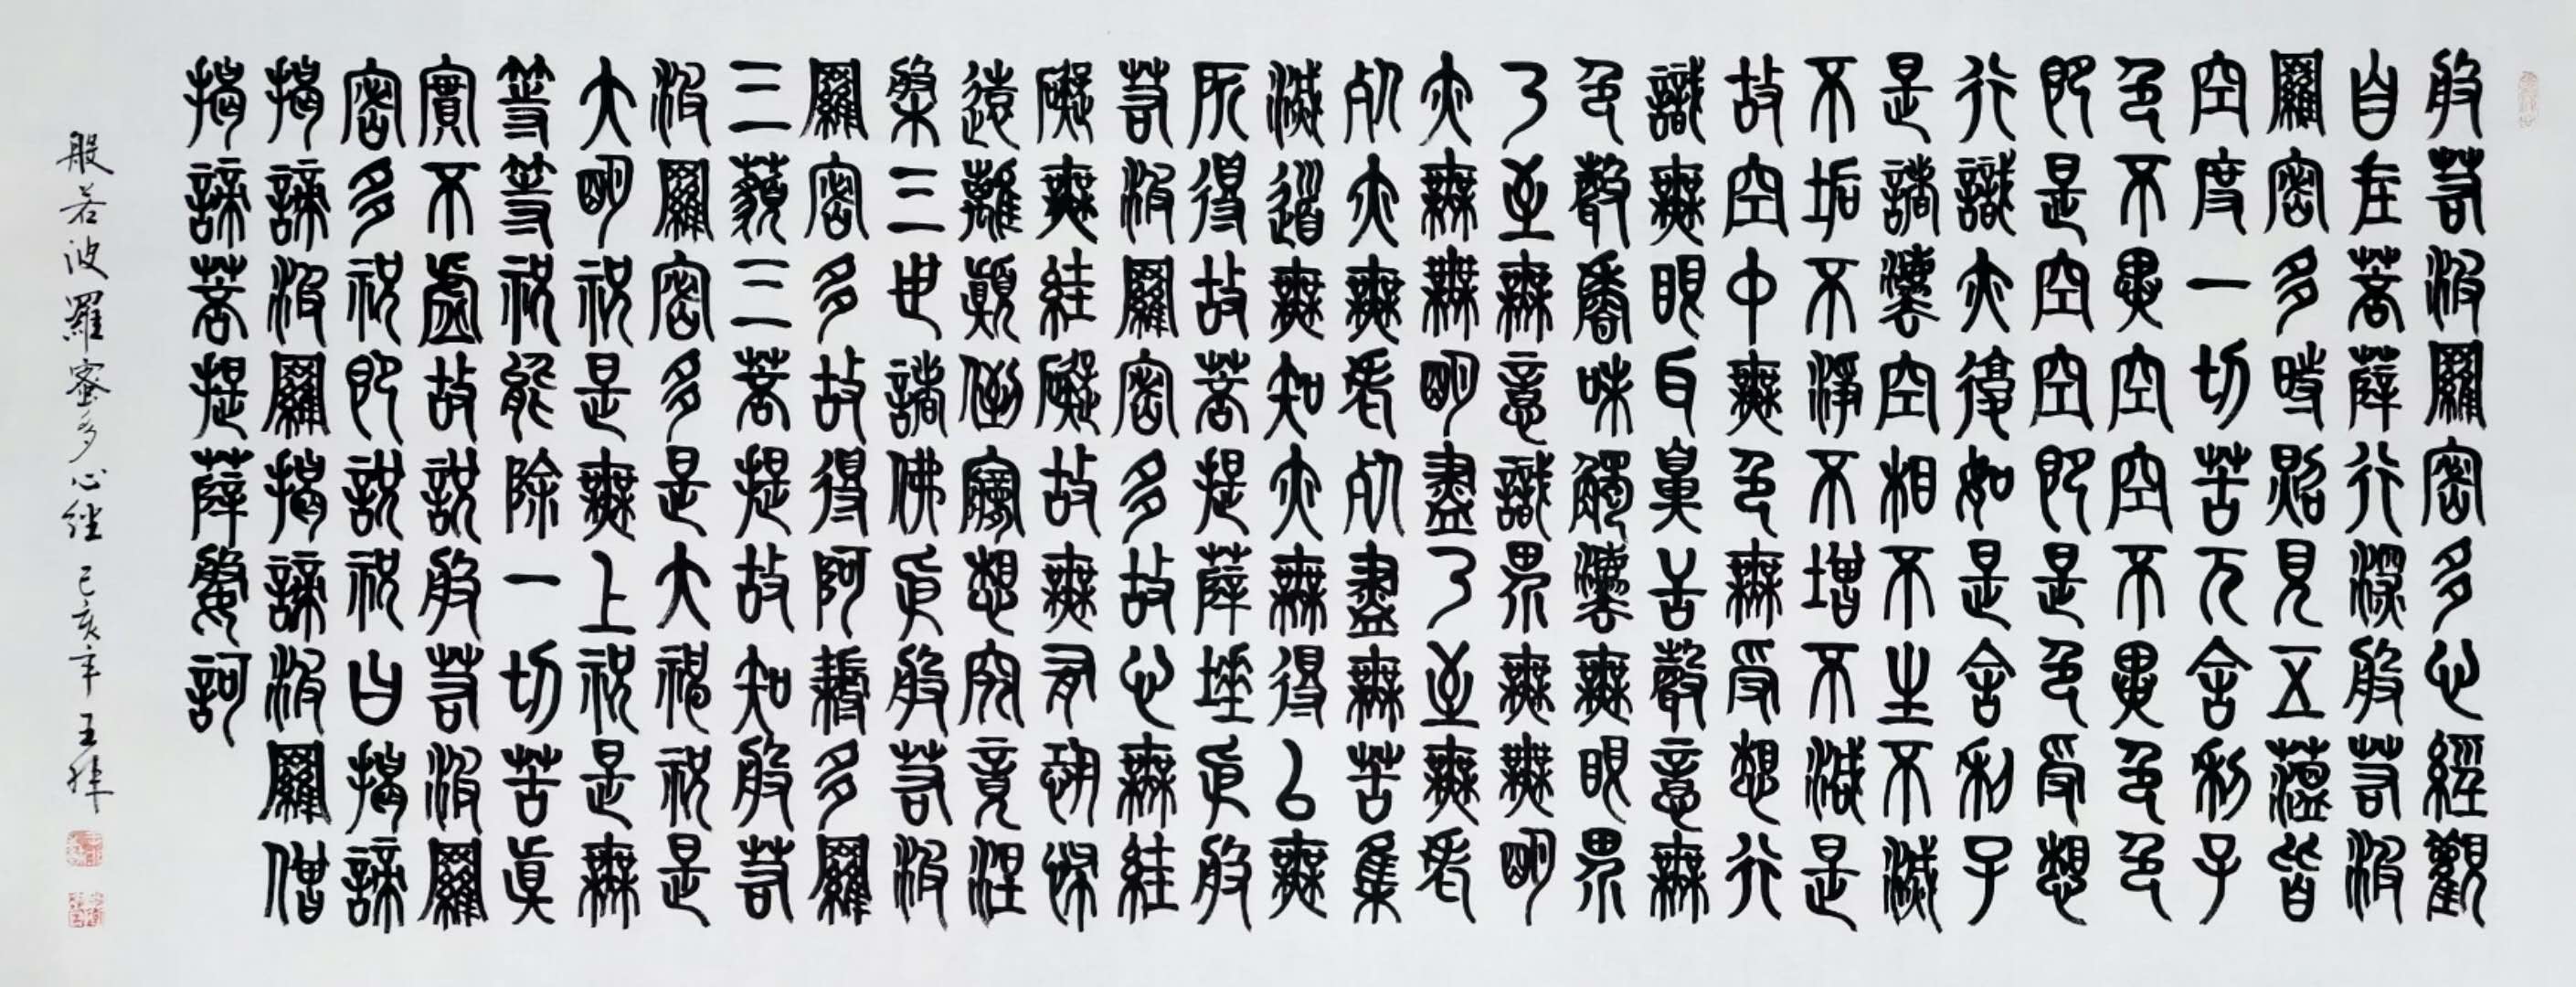 般若波羅密多心經觀
自在菩薩行深般若波
羅密多時照見五蘊皆
空度一切苦厄舍利子
色不異空空不異色色
即是空空即是色受想
行識亦復如是舍利子
是諸法空相不生不滅
不垢不淨不增不減是
故空中無色無受想行
識無眼耳鼻舌聲意無
色聲香味觸法無眼界
乃至無意識界無無明
亦無無明盡乃至無老
死亦無老死盡無苦集
滅道無知亦無得以無
所得故菩提薩埵依般
若波羅密多故心無絓
礙無絓礙故無有恐怖
遠離顛倒夢想究竟涅
槃三世諸佛依般若波
羅密多故得阿耨多羅
三藐三菩提故知般若
波羅密多是大神祝是
大明祝是無上祝是無
等等祝能除一切苦真
實不虛故說般若波羅
密多祝即說祝曰揭諦
揭諦波羅揭諦波羅僧
揭諦菩提薩婆訶
般若波羅蜜多心經 己亥年 王